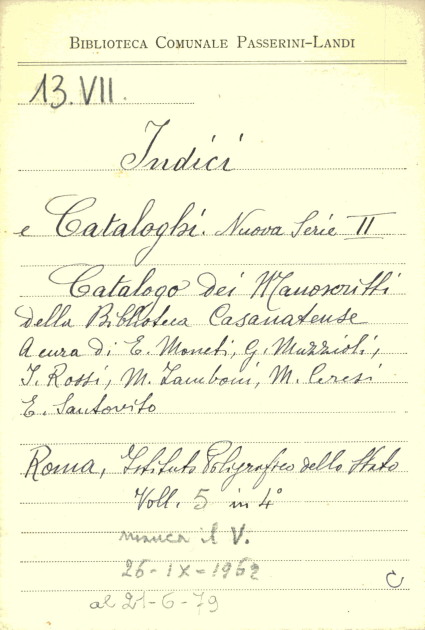 BIBLIOTECA COMUNALE PASSERINI-LANDI
13.VII.
Indici
e Cataloghi. Nuova Serie II
Catalogo dei Manoscritti
della Biblioteca Casanatense
A cura di E. Moneti, G. Muzzioli,
I. Rossi, M. Zamboni, M. Ceresi
E. Santovito
Roma, Istituto Poligrafico dello Stato
Voll. 5 in 4°
manca il V.
26-IX-1962
C
al 21-6-79